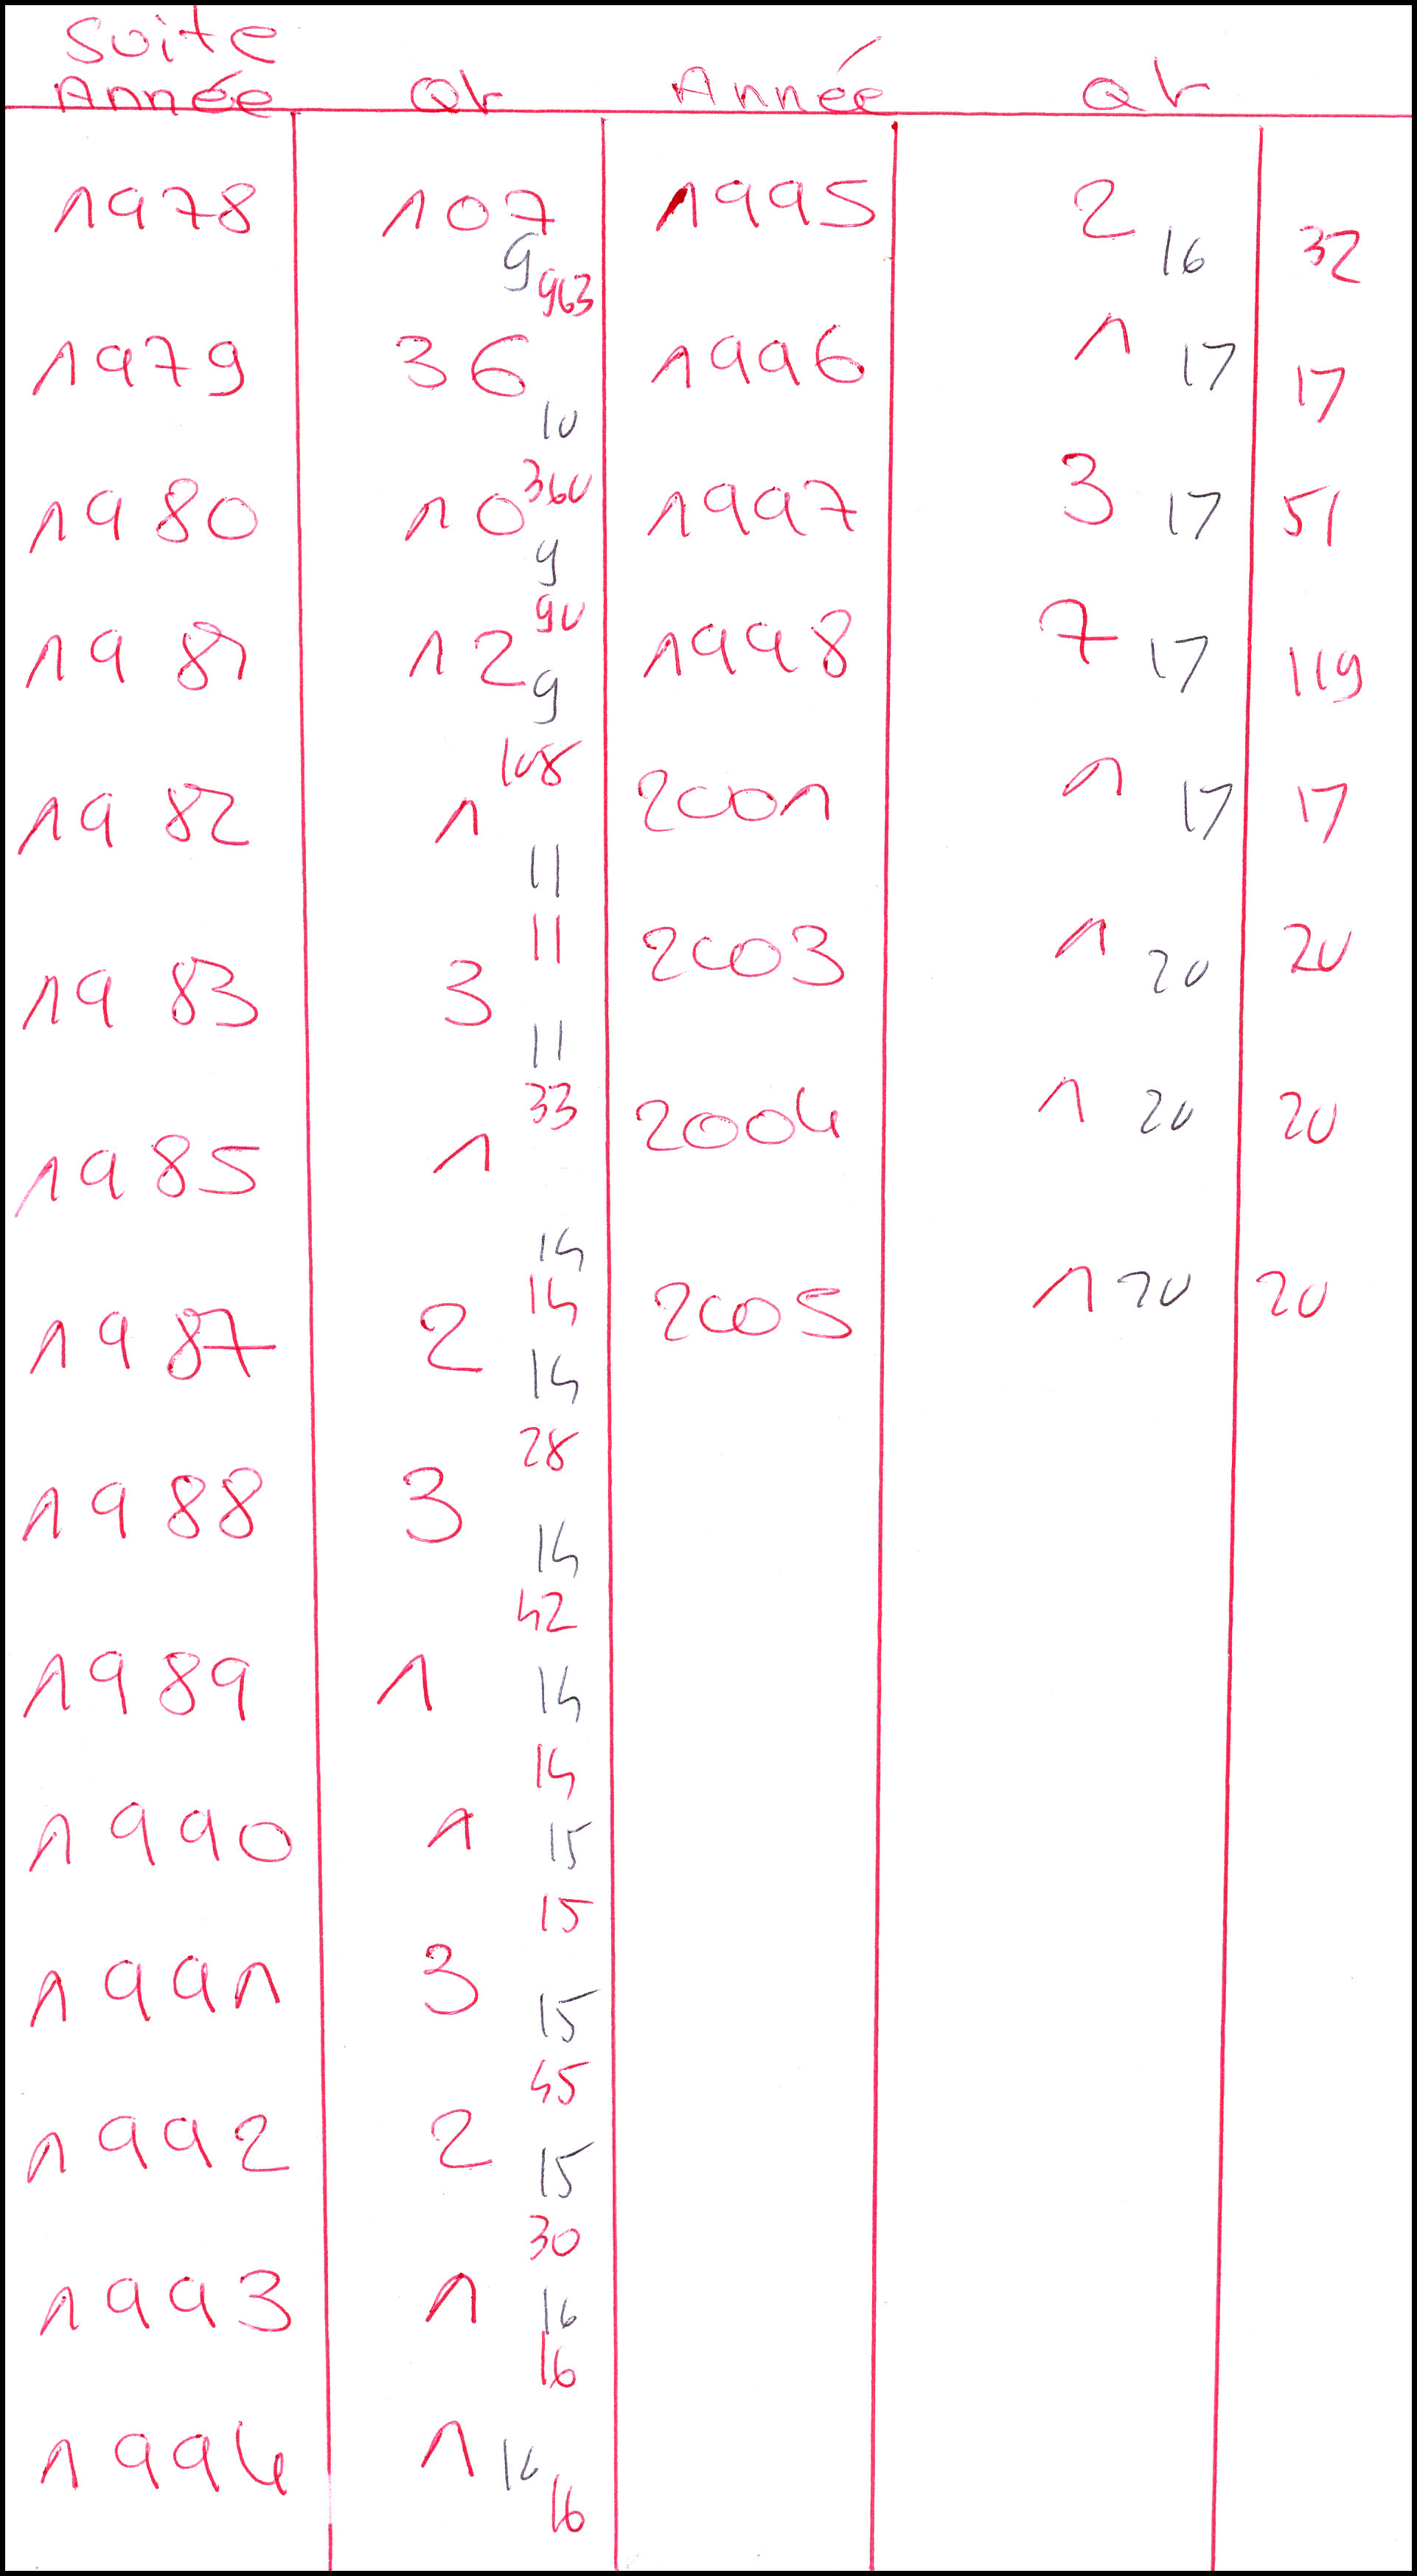 Suite
Année Qt Année Qt
1978 107 9 963 1995 2 16 32
1979 36 10 360 1996 1 17 17
1980 10 9 90 1997 3 17 51
1981 12 9 108 1998 7 17 119
1982 1 11 11 2001 1 17 17
1983 3 11 33 2003 1 20 20
1985 1 14 14 2004 1 20 20
1987 2 14 28 2005 1 20 20
1988 3 14 42
1989 1 14 14
1990 1 15 15
1991 3 15 45
1992 2 15 30
1993 1 16 16
1994 1 16 16